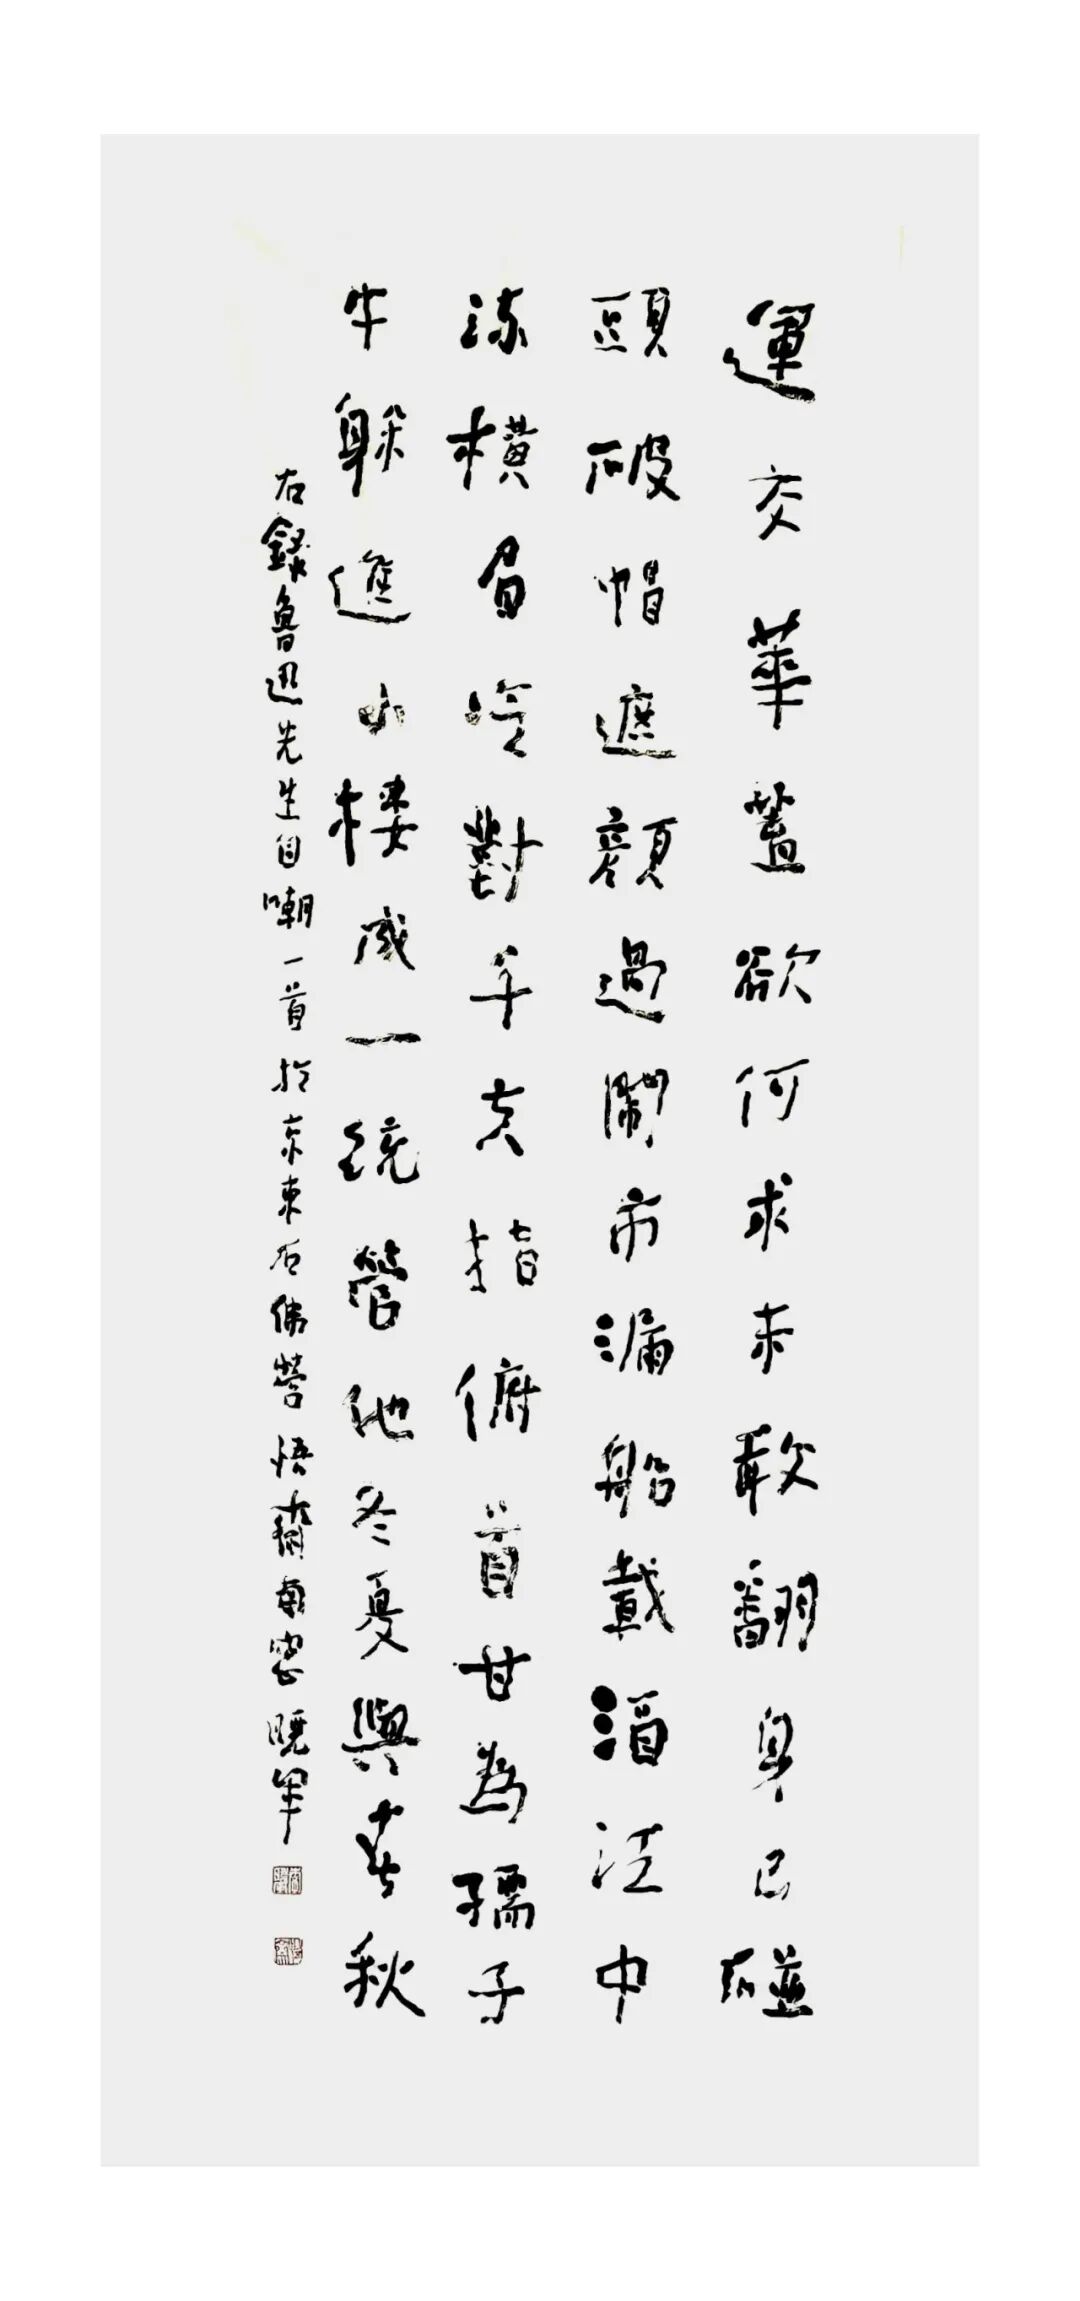 運交華蓋欲何求未敢翻身已碰
頭破帽遮顏過鬧市漏船載酒泛中
流橫眉冷對千夫指俯首甘為孺子
牛躲進小樓成一統管他冬夏與春秋
右錄魯迅先生自嘲一首於京東石佛營悟齋南窗曉軍